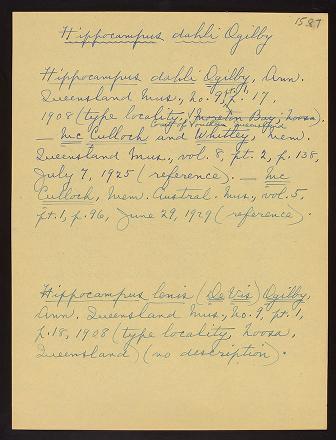 1587
Hippocampus dahli Ogilby
Hippocampus dahli Ogilby, Ann.
Queensland Mus., no. 9, pt. 1, p. 17,
1908 (type locality, Moreton Bay; Noosa).
Mc Culloch and Whitley, Mem.
Queensland Mus., vol. 8, pt. 2, p. 138,
July 7, 1925 (reference). — Mc
Culloch, Mem. Austral. Mus., vol. 5,
pt. 1, p. 96, June 29, 1929 (reference).
Hippocampus lenis (De Vis) Ogilby,
Ann. Queensland Mus., no. 9, pt. 1,
p. 18, 1908 (type locality, Noosa,
Queensland) (no description).